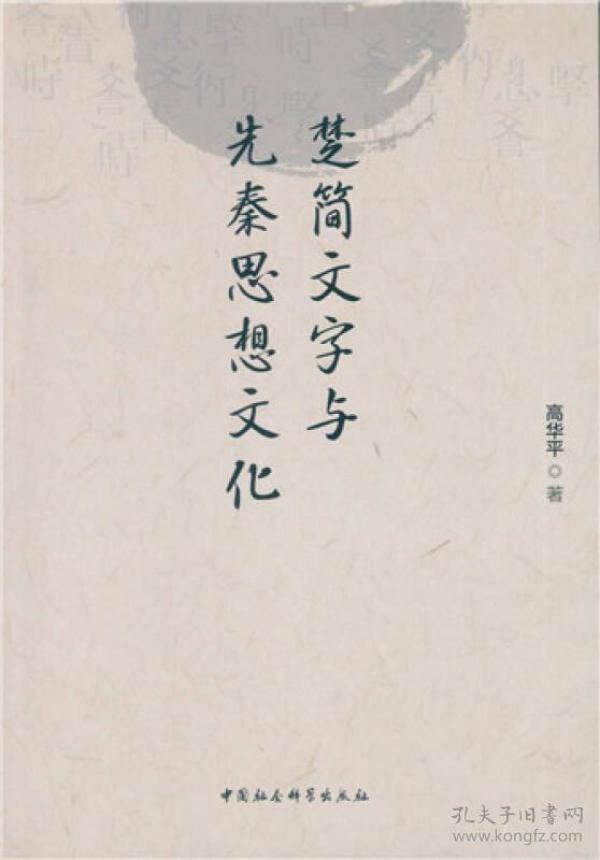 楚简文字与
先秦思想文化
高华平◎著
中国社会科学出版社
孔夫子旧书网
www.kongfz.com